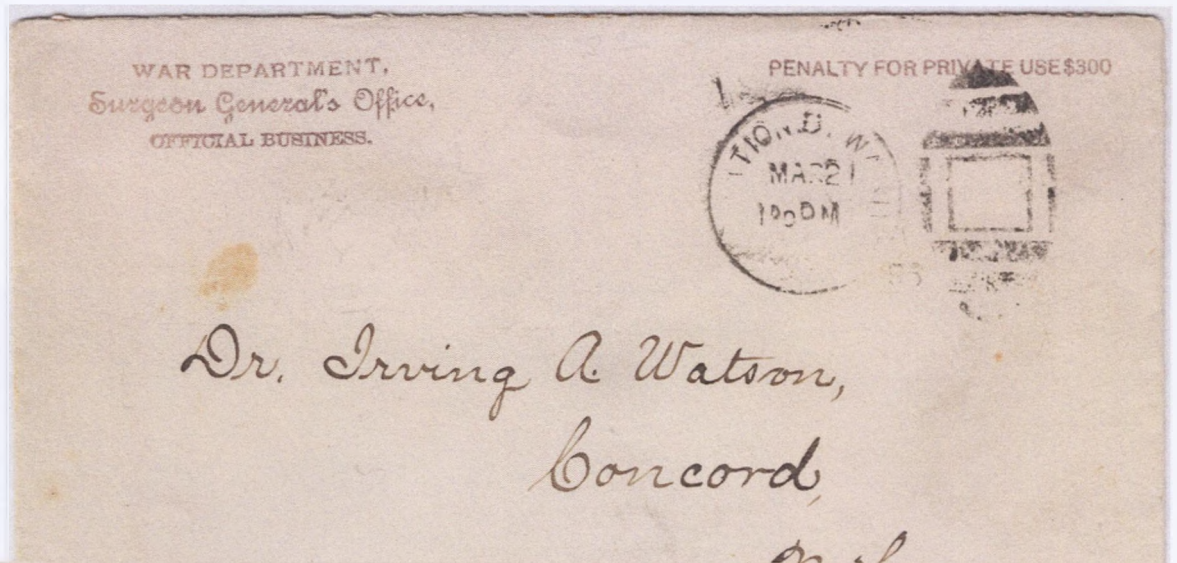 WAR DEPARTMENT,
Surgeon General's Office,
OFFICIAL BUSINESS.
PENALTY FOR PRIVATE USE $300
MAR 21
PM
Dr. Irving A. Watson,
Concord,